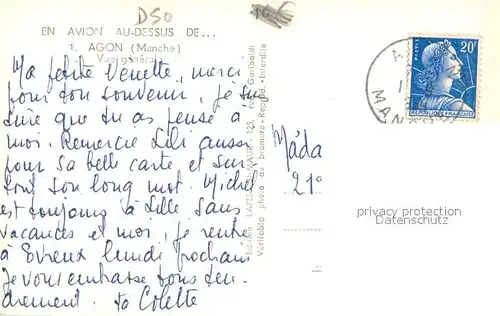 D50
EN AVION AU-DESSUS DE...
1. AGON (Manche)
Vue générale
Ma petite Venette, merci
pour ton souvenir, je suis
sûre que tu as pensé à
moi. Remercie Lili aussi
pour sa belle carte et sur-
tout son long mot. Michel
est toujours à Lille sans
vacances et moi, je rentre
à Evreux lundi prochain
Je vous embrasse tous ten-
drement. ta Colette
Edition LAPIE, 125, rue Garibaldi
Véritable photo au bromure - Reprod. Interdite
Mada
21
POSTES
20F
REPUBLIQUE FRANÇAISE
A
MAN
privacy protection
Datenschutz